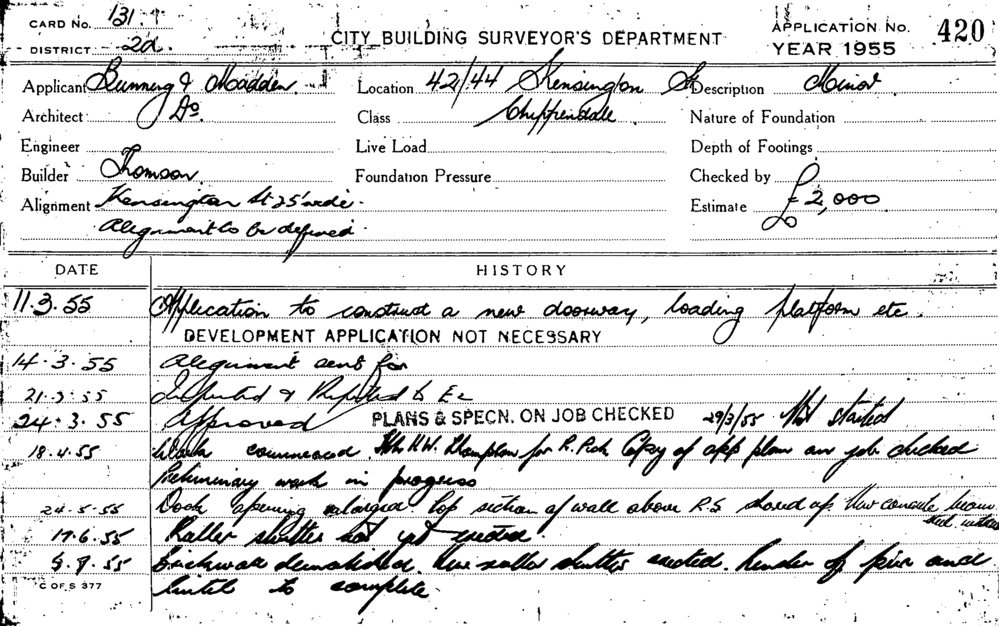 CARD No. 131.
DISTRICT 2d.
CITY BUILDING SURVEYOR'S DEPARTMENT
APPLICATION No. 420
YEAR 1955
Applicant Bunning & Madden
Location 42/44 Kensington St
Description Minor
Architect Do.
Class Chippendale
Nature of Foundation
Engineer
Live Load
Depth of Footings
Builder Thomson
Foundation Pressure
Checked by
Alignment Kensington St 25' wide.
Estimate £2,000
Alignment to be defined.
DATE HISTORY
11.3.55 Application to construct a new doorway, loading platform etc.
DEVELOPMENT APPLICATION NOT NECESSARY
14.3.55 Alignment sent for
21.3.55 Inspected & Reported to
24.3.55 Approved PLANS & SPECN. ON JOB CHECKED 29/3/55 Not started
18.4.55 Work commenced for Copy of app plan on job checked
Preliminary work in progress
24.5.55 Door opening enlarged top section of wall above R.S shored up New concrete beam
17.6.55 Roller shutter not yet erected.
9.8.55 Brickwork demolished. New roller shutter erected. Render of pier and
C OF S 377 lintel to complete.